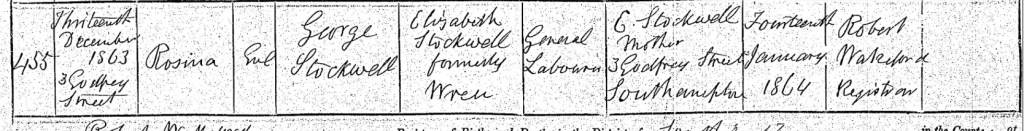 455
Thirteenth
December
1863
3 Godfrey
Street
Rosina
Girl
George
Stockwell
Elizabeth
Stockwell
formerly
Wren
General
Labourer
E. Stockwell
Mother
3 Godfrey Street
Southampton
Fourteenth
January
1864
Robert
Wakeford
Registrar
in the Count